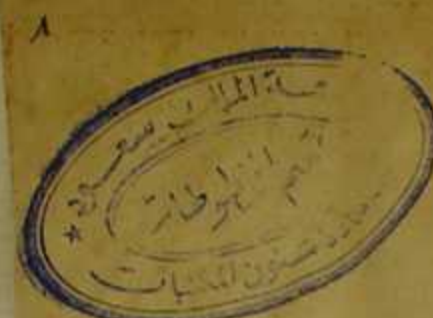 ١
جامعة الملك سعود
قسم المخطوطات
عمادة شئون المكتبات